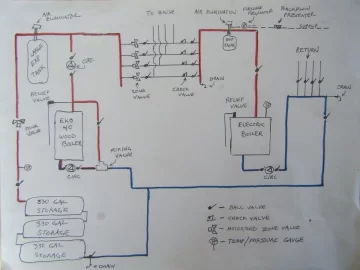 AIR ELIMINATOR
TO HOUSE
AIR ELIMINATOR
PRESSURE REDUCER
BACKFLOW PREVENTER
SUPPLY
LARGE EXP TANK
CIRC
EXP TANK
RETURN
ZONE VALVE
CHECK VALVE
DRAIN
DRAIN
RELIEF VALVE
RELIEF VALVE
ZONE VALVE
EKO 40 WOOD BOILER
ELECTRIC BOILER
MIXING VALVE
CIRC
CIRC
330 GAL STORAGE
330 GAL STORAGE
330 GAL STORAGE
DRAIN
- BALL VALVE
- CHECK VALVE
- MOTORIZED ZONE VALVE
- TEMP/PRESSURE GAUGE